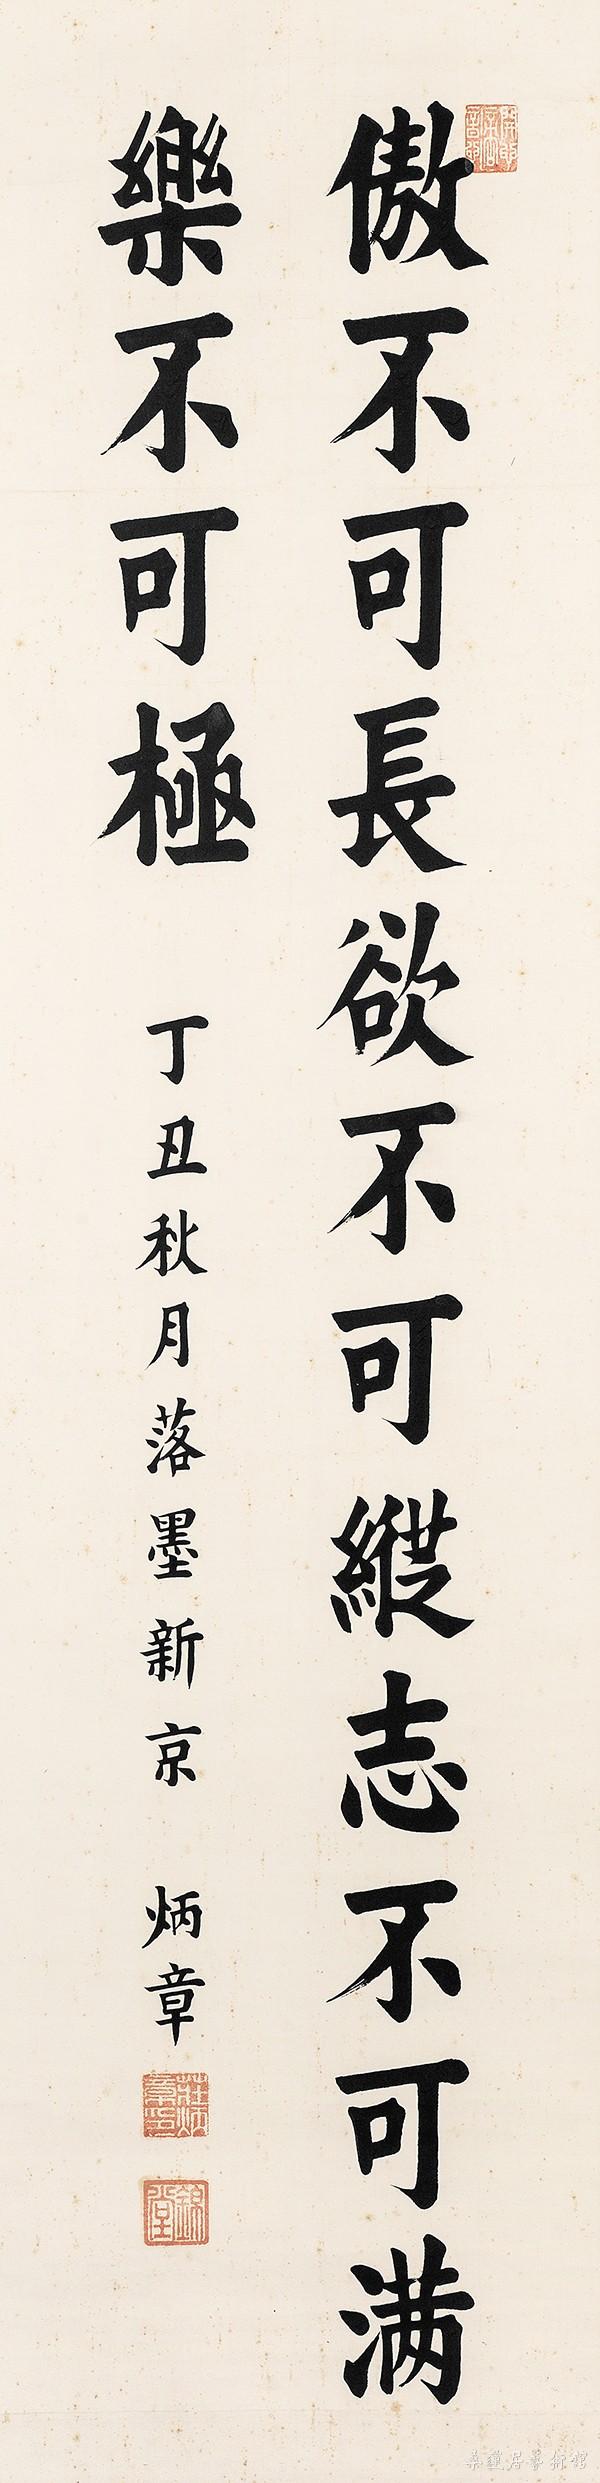 傲不可長欲不可縱志不可满
樂不可極
丁丑秋月落墨新京 炳章
錦堂